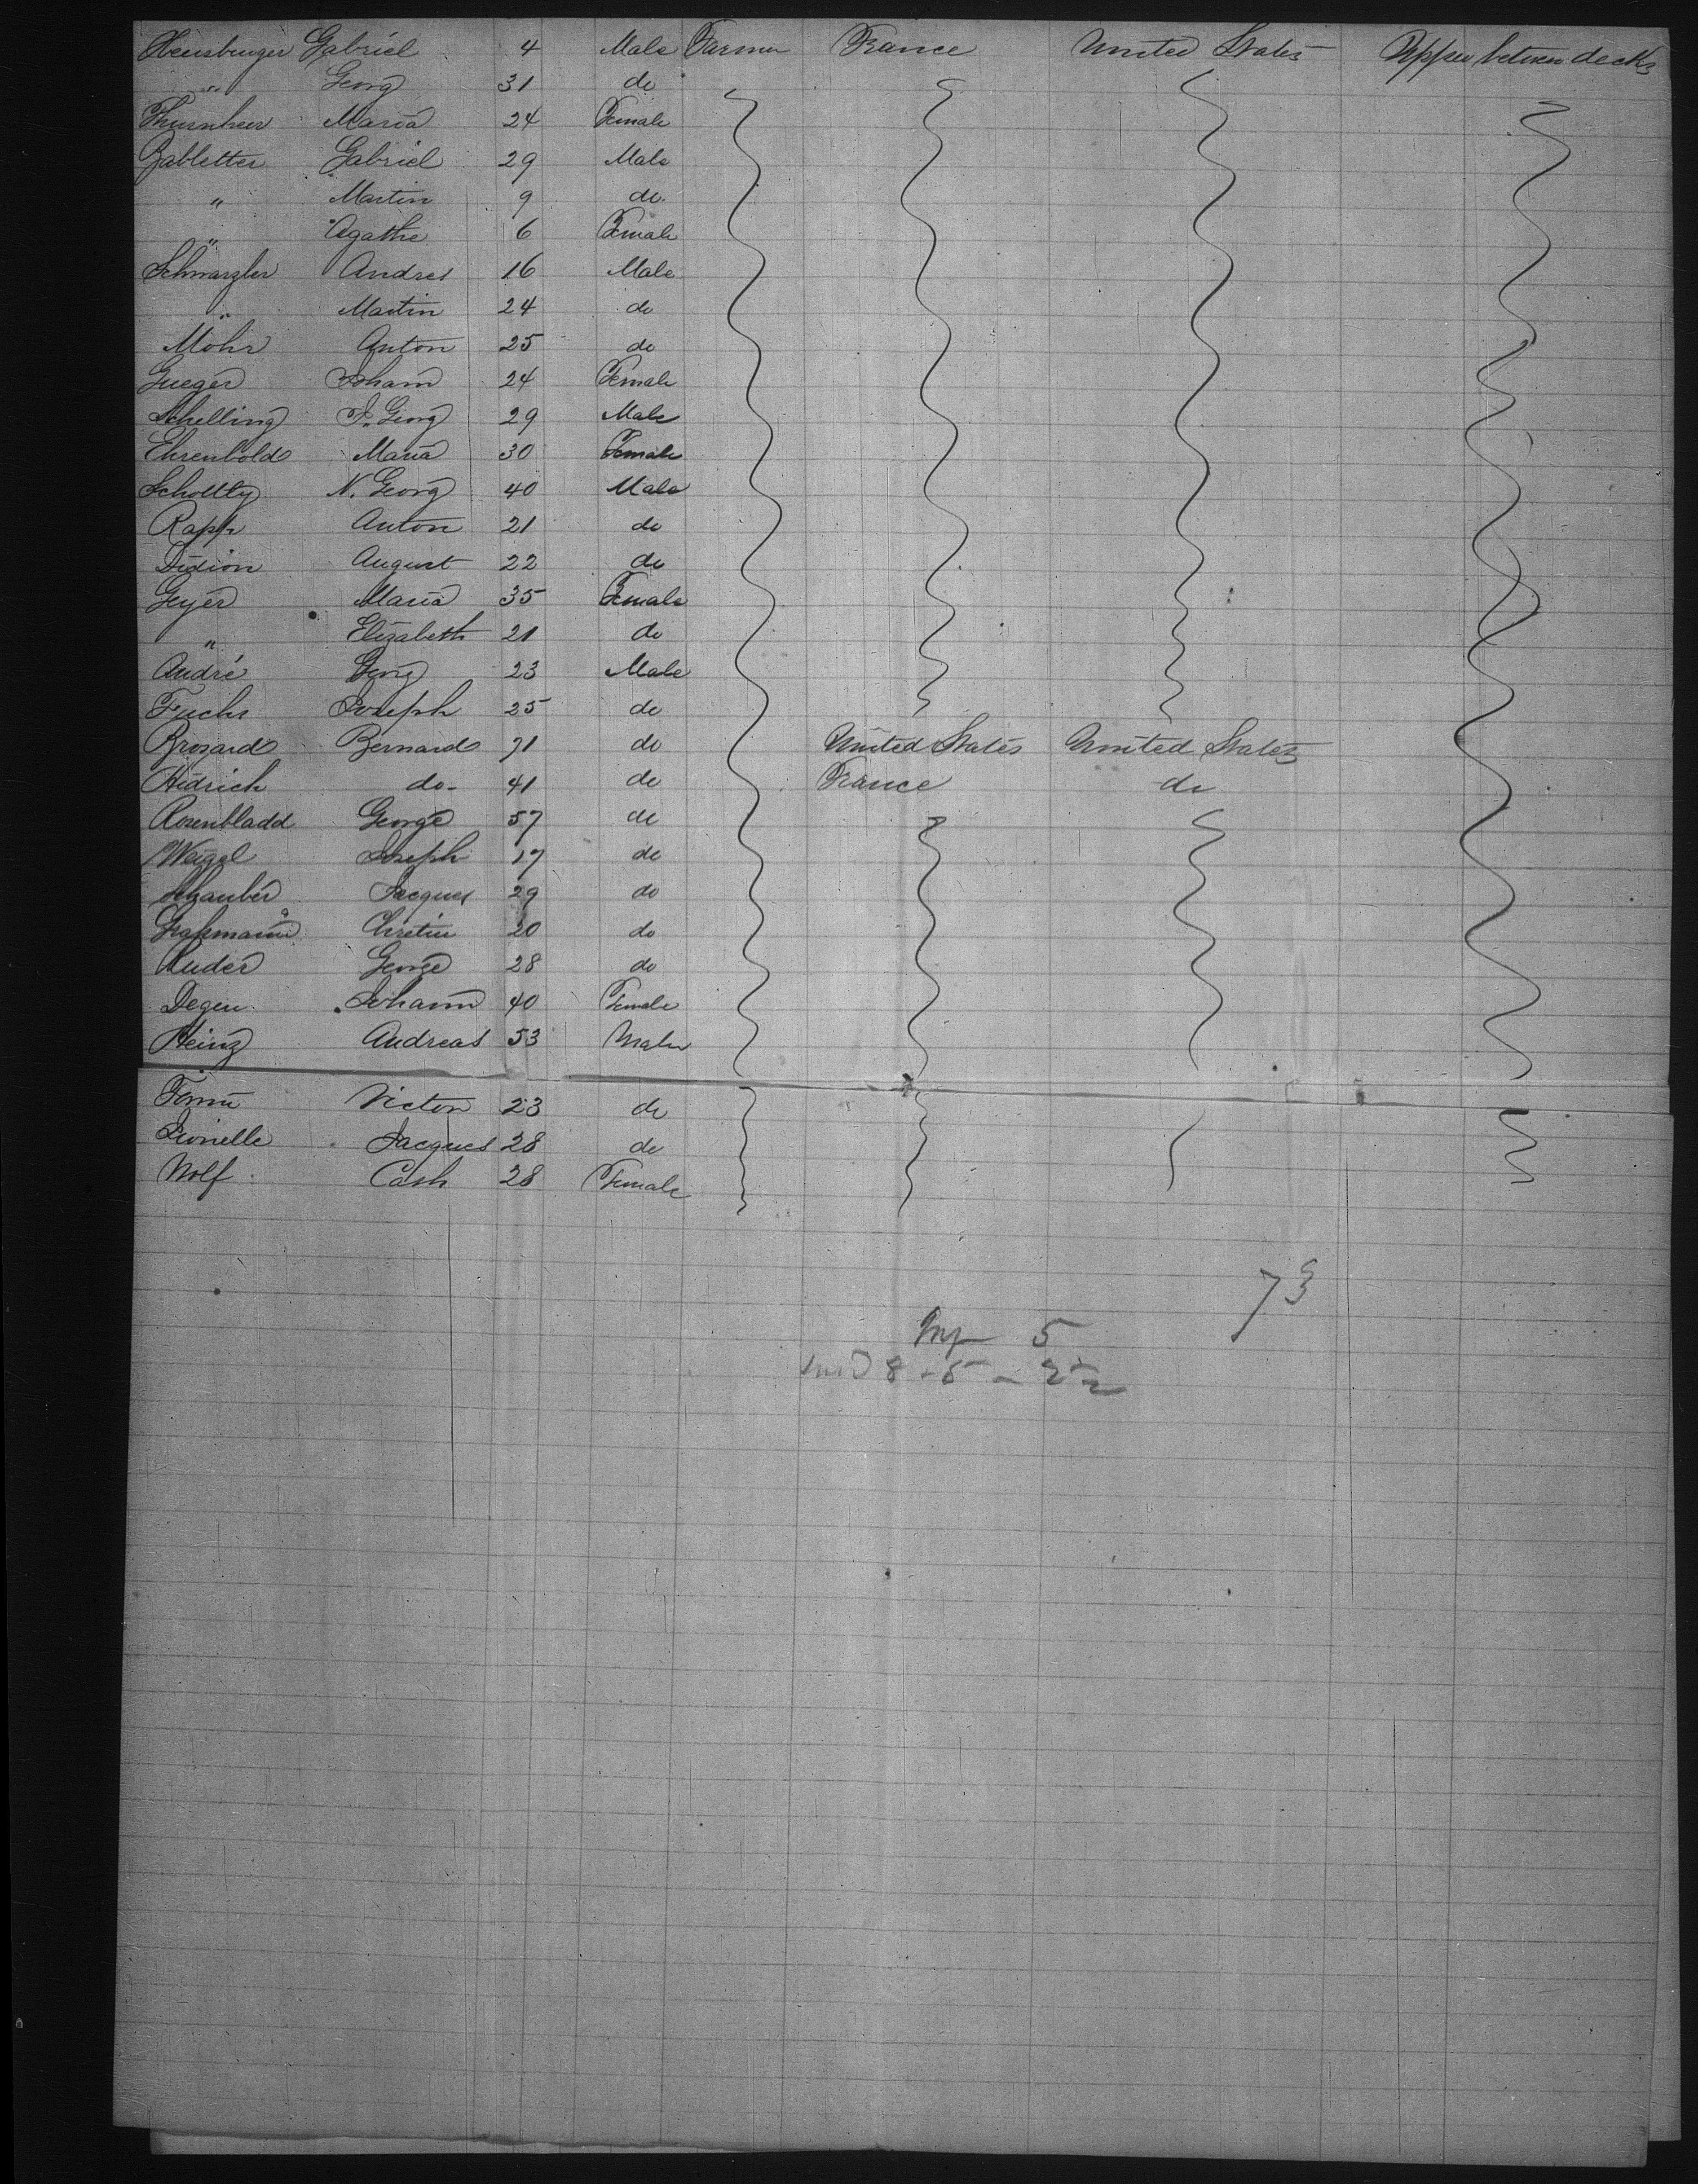 Heensburger Gabriel 4 Male Farmer France United States Upper between decks
" Georg 31 do
Thurnheer Maria 24 Female
Gabletter Gabriel 29 Male
" Martin 9 do.
" Agathe 6 Female
Schwarzler Andres 16 Male
" Martin 24 do
Mohr Anton 25 do
Gueger Joham 24 Female
Schelling J. Georg 29 Male
Ehrenbold Maria 30 Female
Scholtty N. Georg 40 Male
Rapp Anton 21 do
Didion August 22 do
Geyer Maria 35 Female
" Elizabeth 21 do
André Georg 23 Male
Fuchs Joseph 25 do
Brosard Bernard 71 do United States United States
Hidrich do- 41 do France do
Rosenbladd George 57 do
Weigel Joseph 17 do
Schauber Jacques 29 do
Chretin 20 do
Luder George 28 do
Degen Johann 40 Female
Heinz Andreas 53 Male
Victor 23 do
Jacques 28 do
Wolf Cash 28 Female
73
5
8 - 5 - 22